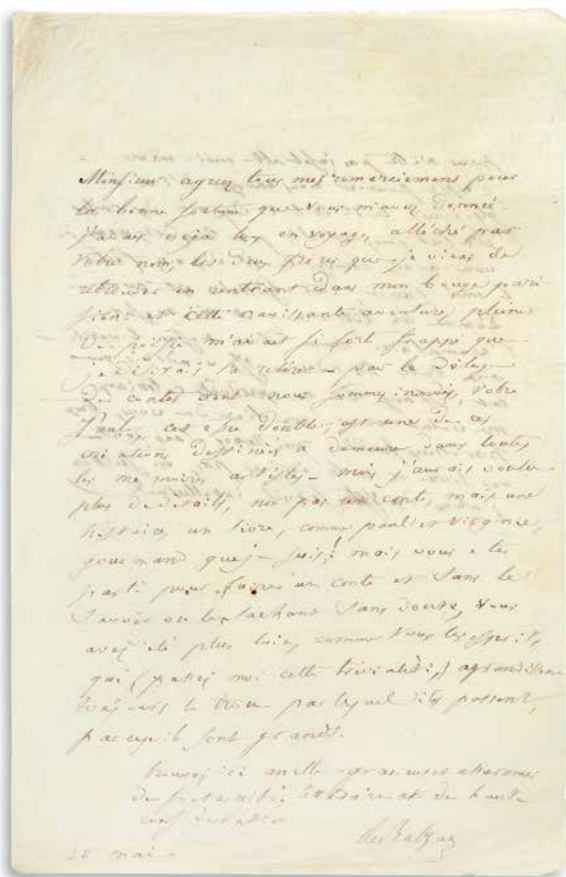 Monsieur, agréez tous mes remerciemens pour
la bonne fortune que vous m'avez donnée
j'avais déjà lu, en voyage, alléché par
votre nom, les deux que je viens de
en rentrant dans mon bouge pari
sien et cette ravissante aventure pleine
de poésie m'avait si fort frappé que
je désirais la relire - par le
de contes dont nous sommes inondés, votre
Paul, cet être double, est une de ces
créations destinées à demeurer dans toutes
les mémoires artistes - mais j'aurais voulu
plus de détails, non pas un conte, mais une
histoire, un livre, comme paul et Virginie,
gourmand que je suis! mais vous êtes
parti pour faire un conte et sans le
savoir ou le sachant sans doute, vous
avez été plus loin, comme tous les esprits,
qui (passez moi cette trivialité,) agrandissent
toujours le trou par lequel ils passent,
parcequ'ils sont grands.
trouvez ici mille gracieuses
de fraternité littéraire et de haute
considération
de Balzac
mai